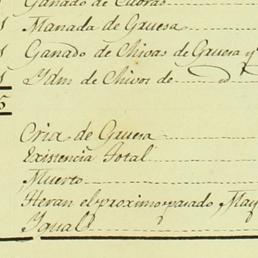 Ganado de Cabras
1 Manada de Gruesa
1 Ganado de Chivas de Gruesa y
1 Ydm de Chivos de d
5
Cria de Gruesa
Existencia total
Muerto
Heran el proximo pasado May
Ygual